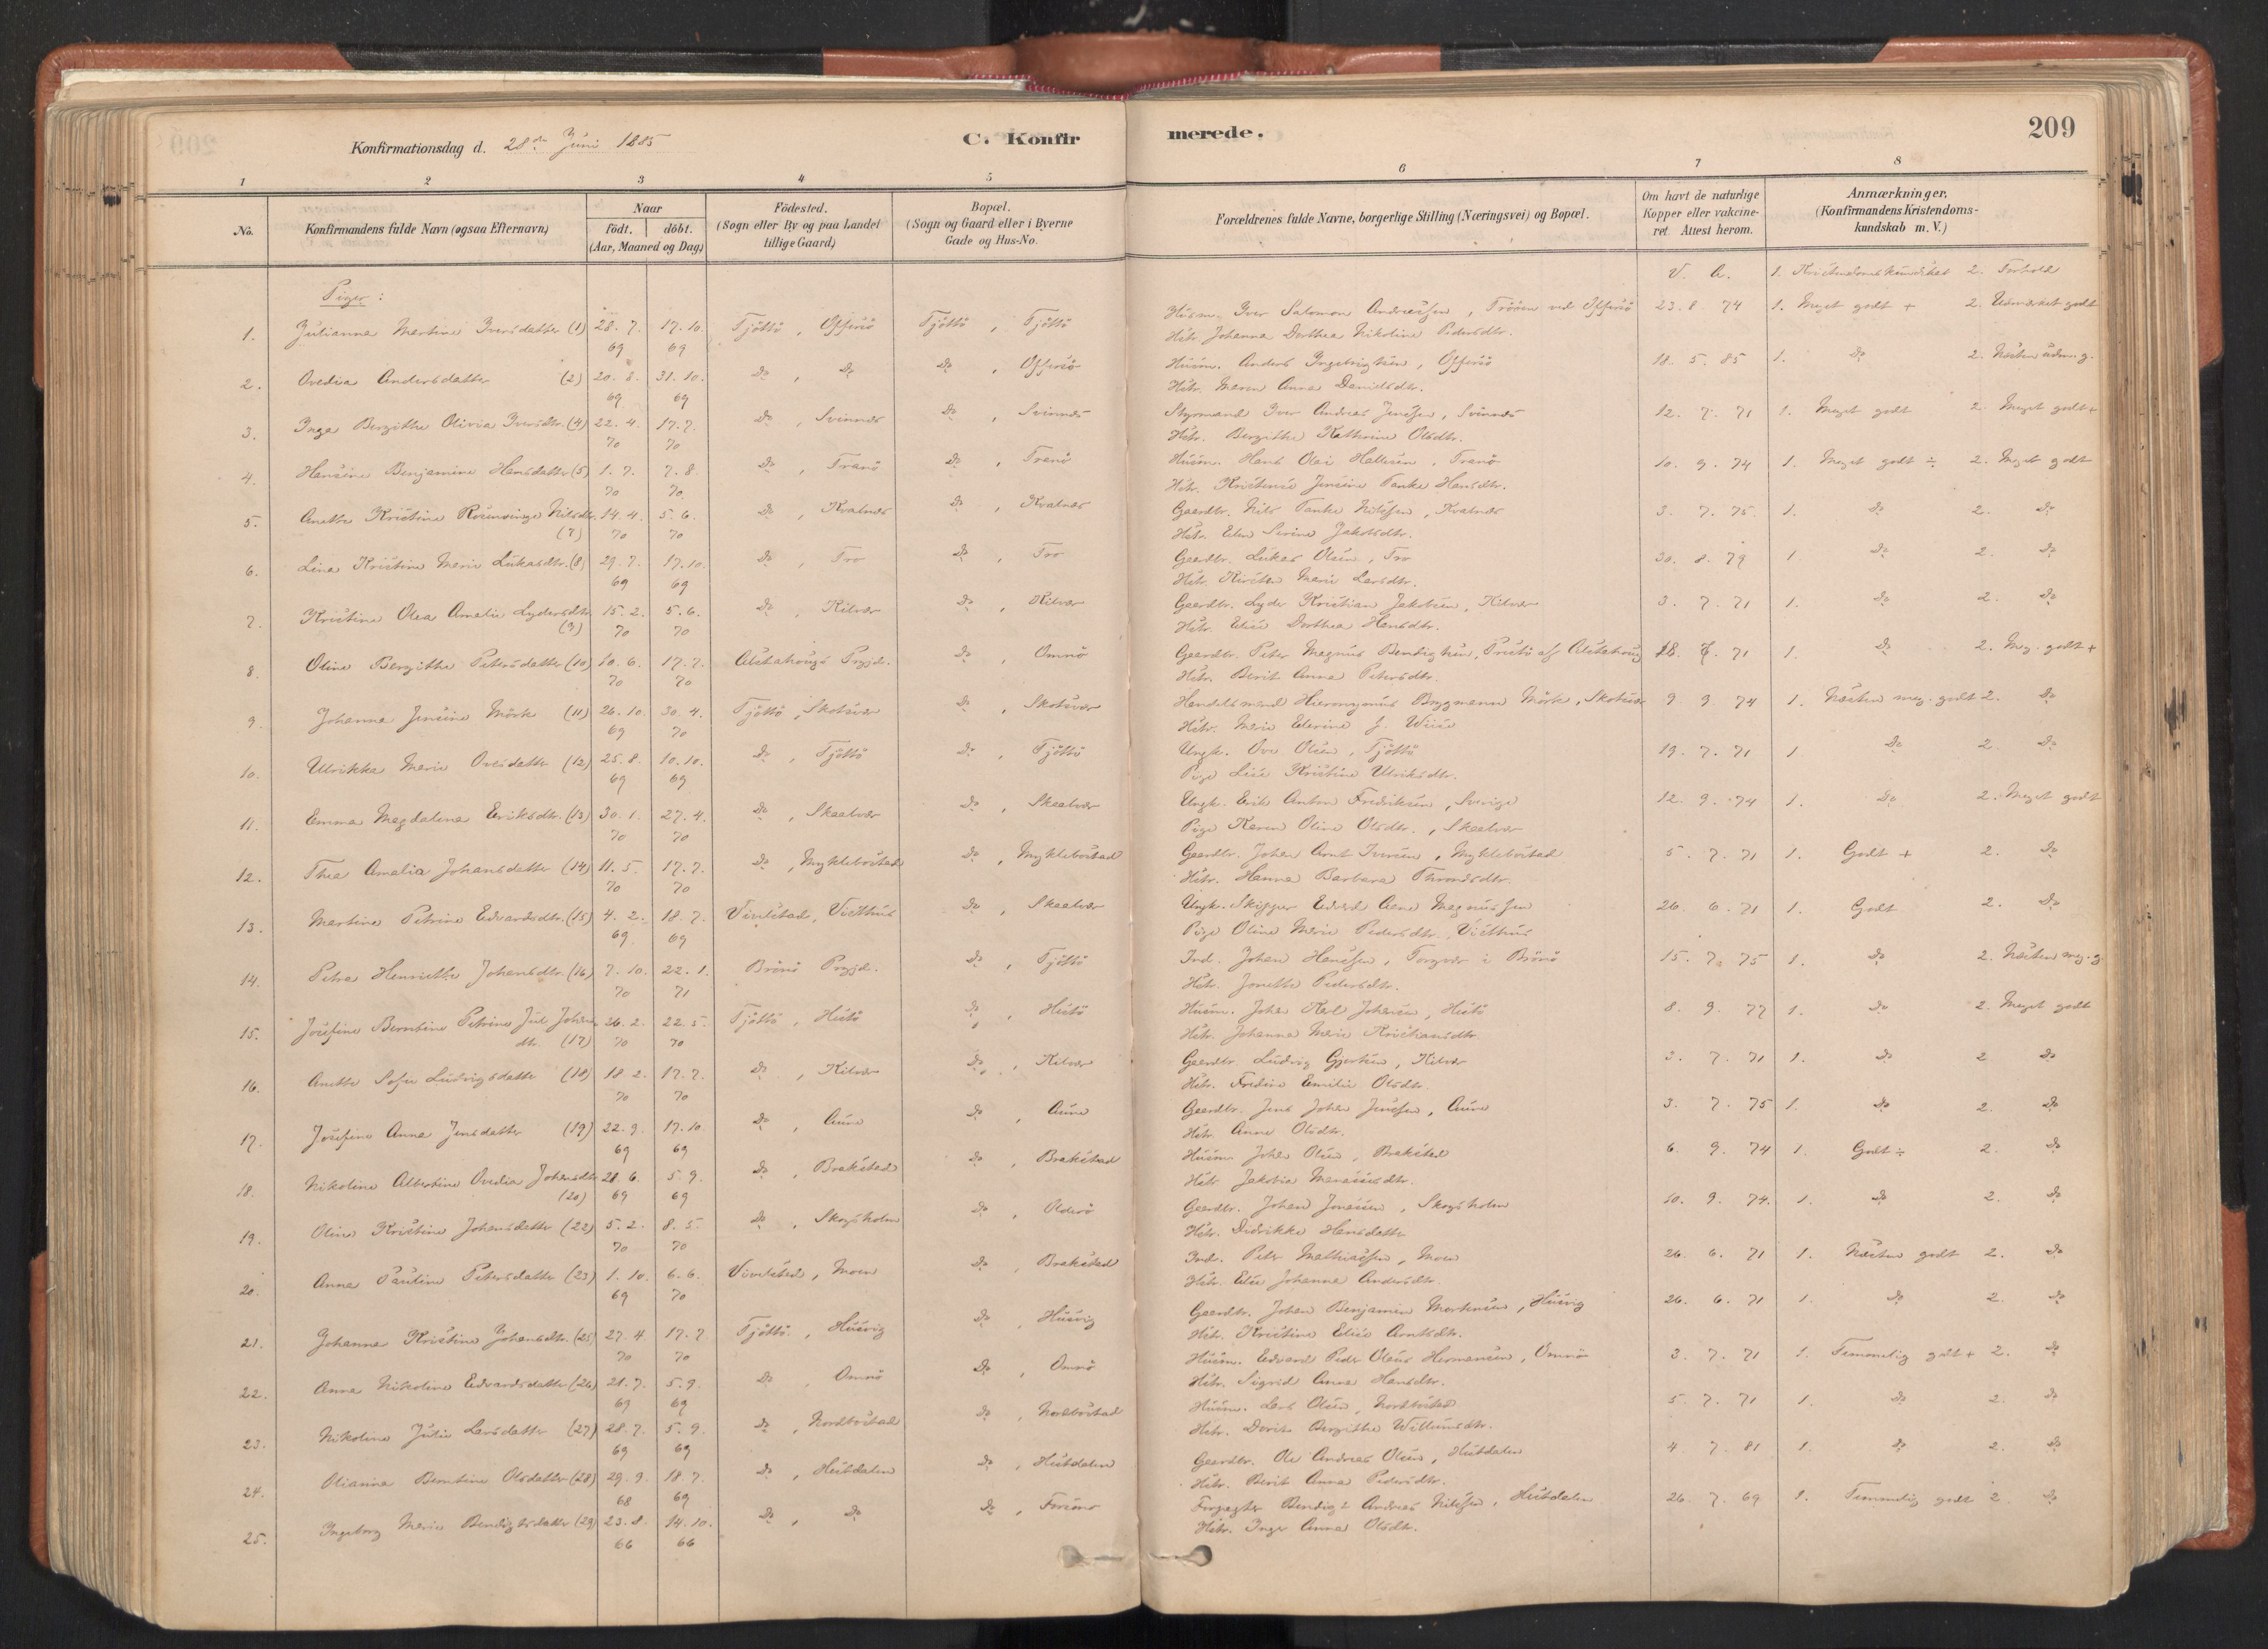 Konfirmationsdag d. 28de Juni 1885
C. Konfirmerede.
209
1 2 3 4 5 6 7 8
No.
Konfirmandens fulde Navn (ogsaa Efternavn)
Naar
födt. döbt.
(Aar, Maaned og Dag)
Födested.
(Sogn eller By og paa Landet
tillige Gaard)
Bopæl.
(Sogn og Gaard eller i Byerne
Gade og Hus-No.
Forældrenes fulde Navne, borgerlige Stilling (Næringsvei) og Bopæl.
Om havt de naturlige
Kopper eller vakcine-
ret Attest herom.
Anmærkninger,
(Konfirmandens Kristendoms-
kundskab m. V.)
V. A. 1. Kristendomskundskab 2. Forhold
Piger:
1. Julianna Martine Iversdatter (1) 28. 7. 69 17. 10. 69 Tjöttö, Offersö Tjöttö, Tjöttö Husm. Iver Salomon Andreassen, Tröen ved Offersö 23. 8. 74 1. Meget godt + 2. Udmærket godt
Hstr. Johanna Dorthea Nikoline Pedersdtr.
2. Ovedia Andersdatter (2) 20. 8. 69 31. 10. 69 Do, Do Do, Offersö Husm. Anders Ingebrigtsen, Offersö 18. 5. 85 1. Do 2. Næsten udm. g.
Hstr. Maren Anna Danielsdtr.
3. Inga Bergithe Olivia Iversdtr. (4) 22. 4. 70 17. 7. 70 Do, Svinnes Do, Svinnes Styrmand Iver Andreas Jensen, Svinnes 12. 7. 71 1. Meget godt 2. Meget godt +
Hstr. Bergithe Kathrine Olsdtr.
4. Hansine Benjamine Hansdatter (5) 1. 7. 70 7. 8. 70 Do, Tranö Do, Tranö Husm. Hans Olai Hallesen, Tranö 10. 9. 74 1. Meget godt ÷ 2. Meget godt
Hstr. Jensine Tanke Hansdtr.
5. Anette Kristine Nilsdtr. (7) 14. 4. 70 5. 6. 70 Do, Kvalnes Do, Kvalnes Gaardbr. Nils Tanke Nilssen, Kvalnes 3. 7. 75 1. Do 2. Do
Hstr. Elen Serine Jakobsdtr.
6. Lina Kristine Marie Lukasdtr. (8) 29. 7. 69 17. 10. 69 Do, Tro Do, Tro Gaardbr. Lukas Olsen, Tro 30. 8. 79 1 Do 2. Do
Hstr. Kirsten Marie Larsdtr.
7. Kristine Olea Amalie Lydersdtr (9) 15. 2. 70 5. 6. 70 Do, Kilvær Do, Kilvær Gaardbr. Lyder Kristian Jakobsen, Kilvær 3. 7. 71 1. Do 2. Do
Hstr. Elise Dorthea Hansdtr.
8. Oline Bergithe Petersdatter (10) 10. 6. 70 17. 7. 70 Alstahougs Prgjd. Do, Omnö Gaardbr. Peter Magnus Bendigtsen, af Alstahoug 18. 7. 71 1. Do 2. Meg. godt +
Hstr. Berit Anna Petersdtr.
9. Johanna Jensine Mörk (11) 26. 10. 69 30. 4. 70 Tjöttö, Skotsvær Do, Skotsvær Handelsmand Hieronymus Brygmann Mörk, Skotsvær 9. 9. 74 1. Næsten meg. godt 2. Do
Hstr. Marie Elerine J. Wiise
10. Ulrikke Marie Ovesdatter (12) 25. 8. 69 10. 10. 69 Do, Tjöttö Do, Tjöttö Ungk. Ove Olsen, Tjöttö 19. 7. 71 1 Do 2. Do
Pige Lise Kristine Ulriksdtr.
11. Emma Magdalena Eriksdtr. (13) 30. 1. 70 27. 4. 70 Do, Skaalvær Do, Skaalvær Ungk. Erik Anton Fredriksen, Sverige 12. 9. 74 1. Do 2. Meget godt
Pige Karen Oline Olsdtr., Skaalvær
12. Thea Amalia Johansdatter (14) 11. 5. 70 17. 7. 70 Do, Myklebostad Do, Myklebostad Gaardbr. Johan Arnt Iversen, Myklebostad 5. 7. 71 1. Godt + 2. Do
Hstr. Hanna Barbara Thronsdtr.
13. Martine Petrine Edvardsdtr. (15) 4. 2. 69 18. 7. 69 Vivelstad, Visthus Do, Skaalvær Ungk. Skipper Edvard Magnussen 26. 6. 71 1. Godt 2. Do
Pige Oline Marie Pedersdtr. Visthus
14. Petra Henriette Johansdtr. (16) 7. 10. 70 22. 1. 71 Brönö Prgjd. Do, Tjöttö Ind. Johan Hansen, Torgvær i Brönö 15. 7. 75 1. Do 2. Næsten meg. g.
Hstr. Jonette Pedersdtr.
15. Josefine Berntine Petrine Jul Johansdtr. (17) 26. 2. 70 22. 5. 70 Tjöttö, Hustö Do, Hustö Husm. Johan Karl Johansen, Hustö 8. 9. 77 1. Do 2. Meget godt
Hstr. Johanna Marie Kristiansdtr.
16. Anette Sofie Ludvigsdatter (18) 18. 2. 70 17. 7. 70 Do, Kilvær Do, Kilvær Gaardbr. Ludvig Gjertsen, Kilvær 3. 7. 71 1. Do 2 Do
Hstr. Fredine Emilie Olsdtr.
17. Josefine Anna Jensdatter (19) 22. 9. 69 17. 10. 69 Do, Aune Do, Aune Gaardbr. Jens Johan Jensen, Aune 3. 7. 75 1. Do 2. Do
Hstr. Anne Olsdtr.
18. Nikoline Albertine Ovedia Johansdtr (20) 28. 6. 69 5. 9. 69 Do, Brakstad Do, Brakstad Husm. Johan Olsen, Brakstad 6. 9. 74 1. Godt ÷ 2. Do
Hstr. Jakobia Mariusdtr.
19. Oline Kristine Johansdatter (22) 5. 2. 70 8. 5. 70 Do, Skogsholm Do, Olderö Gaardbr. Johan Jonassen, Skogsholm 10. 9. 74. 1. Do 2. Do
Hstr. Didrikke Hansdatter
20. Anna Pauline Petersdatter (23) 1. 10. 69 6. 6. 70 Vivelstad, Moen Do, Brakstad Ind. Peter Mathiassen, Moen 26. 6. 71 1. Næsten godt 2. Do
Hstr. Else Johanna Andersdtr.
21. Johanna Kristine Johansdtr. (25) 27. 4. 70 17. 7. 70 Tjöttö, Husvig Do, Husvig Gaardbr. Johan Benjamin Mortensen, Husvig 26. 6. 71 1. Do 2. Do
Hstr. Kristine Elise Arntsdtr.
22. Anna Nikoline Edvardsdatter (26) 21. 7. 69 5. 9. 69 Do, Omnö Do, Omnö Husm. Edvard Peder Olaus Hermansen, Omnö 3. 7. 71 1. Temmelig godt + 2. Do
Hstr. Sigrid Anna Hansdtr.
23. Nikoline Julie Larsdatter (27) 28. 7. 69 5. 9. 69 Do, Nordbostad Do, Nordbostad Husm. Lars Olsen, Nordbostad 5. 7. 71 1. Do 2. Do
Hstr. Dorit Bergithe Willumsdtr.
24. Olianna Berntine Olsdatter (28) 29. 9. 68 18. 7. 69 Do, Hustdalen Do, Hustdalen Gaardbr. Ole Andreas Olsen, Hustdalen 4. 7. 81 1. Do 2. Do
Hstr. Berit Anna Pedersdtr.
25. Ingeborg Marie Bendigtsdatter (29) 23. 8. 66 14. 10. 66 Do, Do Do, Forsöno Forpagter Bendigt Andreas Nilssen, Hustdalen 26. 7. 69 1. Temmelig godt 2 Do
Hstr. Inger Anna Olsdtr.